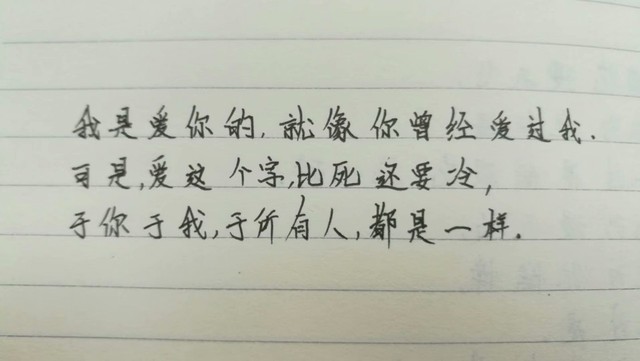 我是爱你的,就像你曾经爱过我.
可是,爱这个字,比死还要冷,
于你于我,于所有人,都是一样.